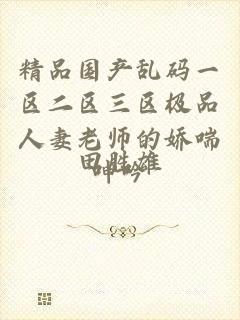 精品国产乱码一
区二区三区极品
人妻老师的娇喘
呻吟
田胜雄